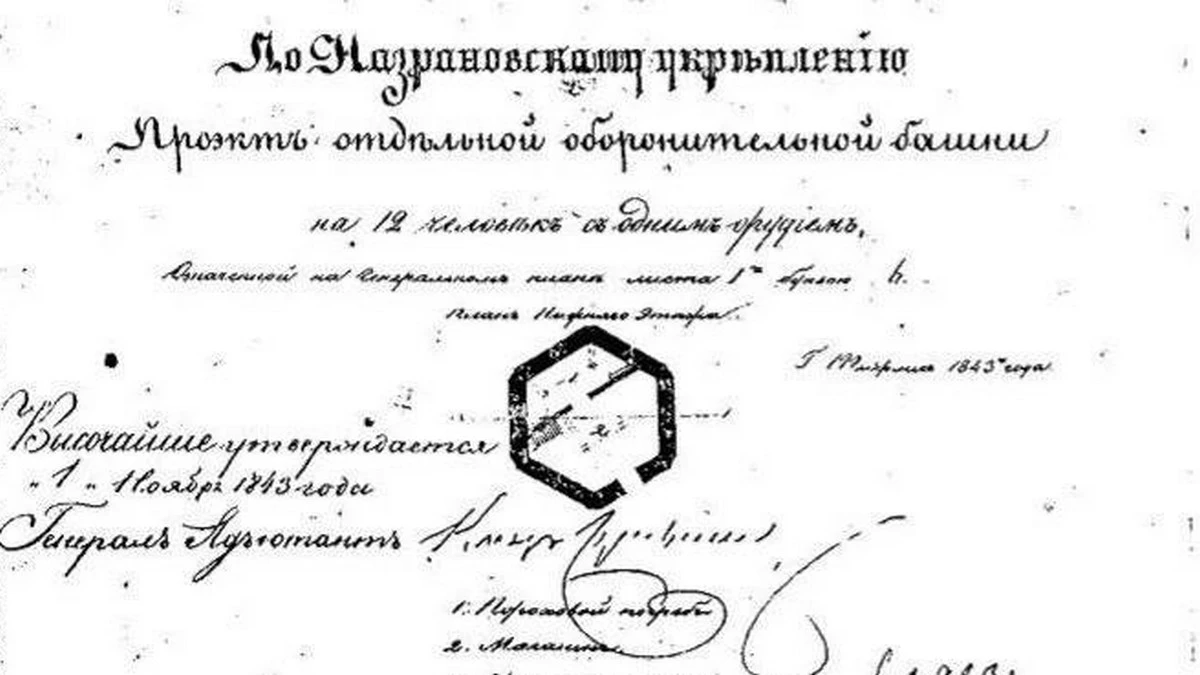 По Назрановскому укрѣпленію
Проэктъ отдѣльной оборонительной башни
на 12 человѣкъ съ однимъ орудіемъ,
Означенной на Генеральномъ планѣ листа 1го буквою h.
Планъ Нижняго Этажа.
Г. Тифлисъ 1843го года
Высочайше утверждается
„1„ Ноября 1843 года
Генералъ Адъютантъ
1. Пороховой погребъ
2. Магазинъ